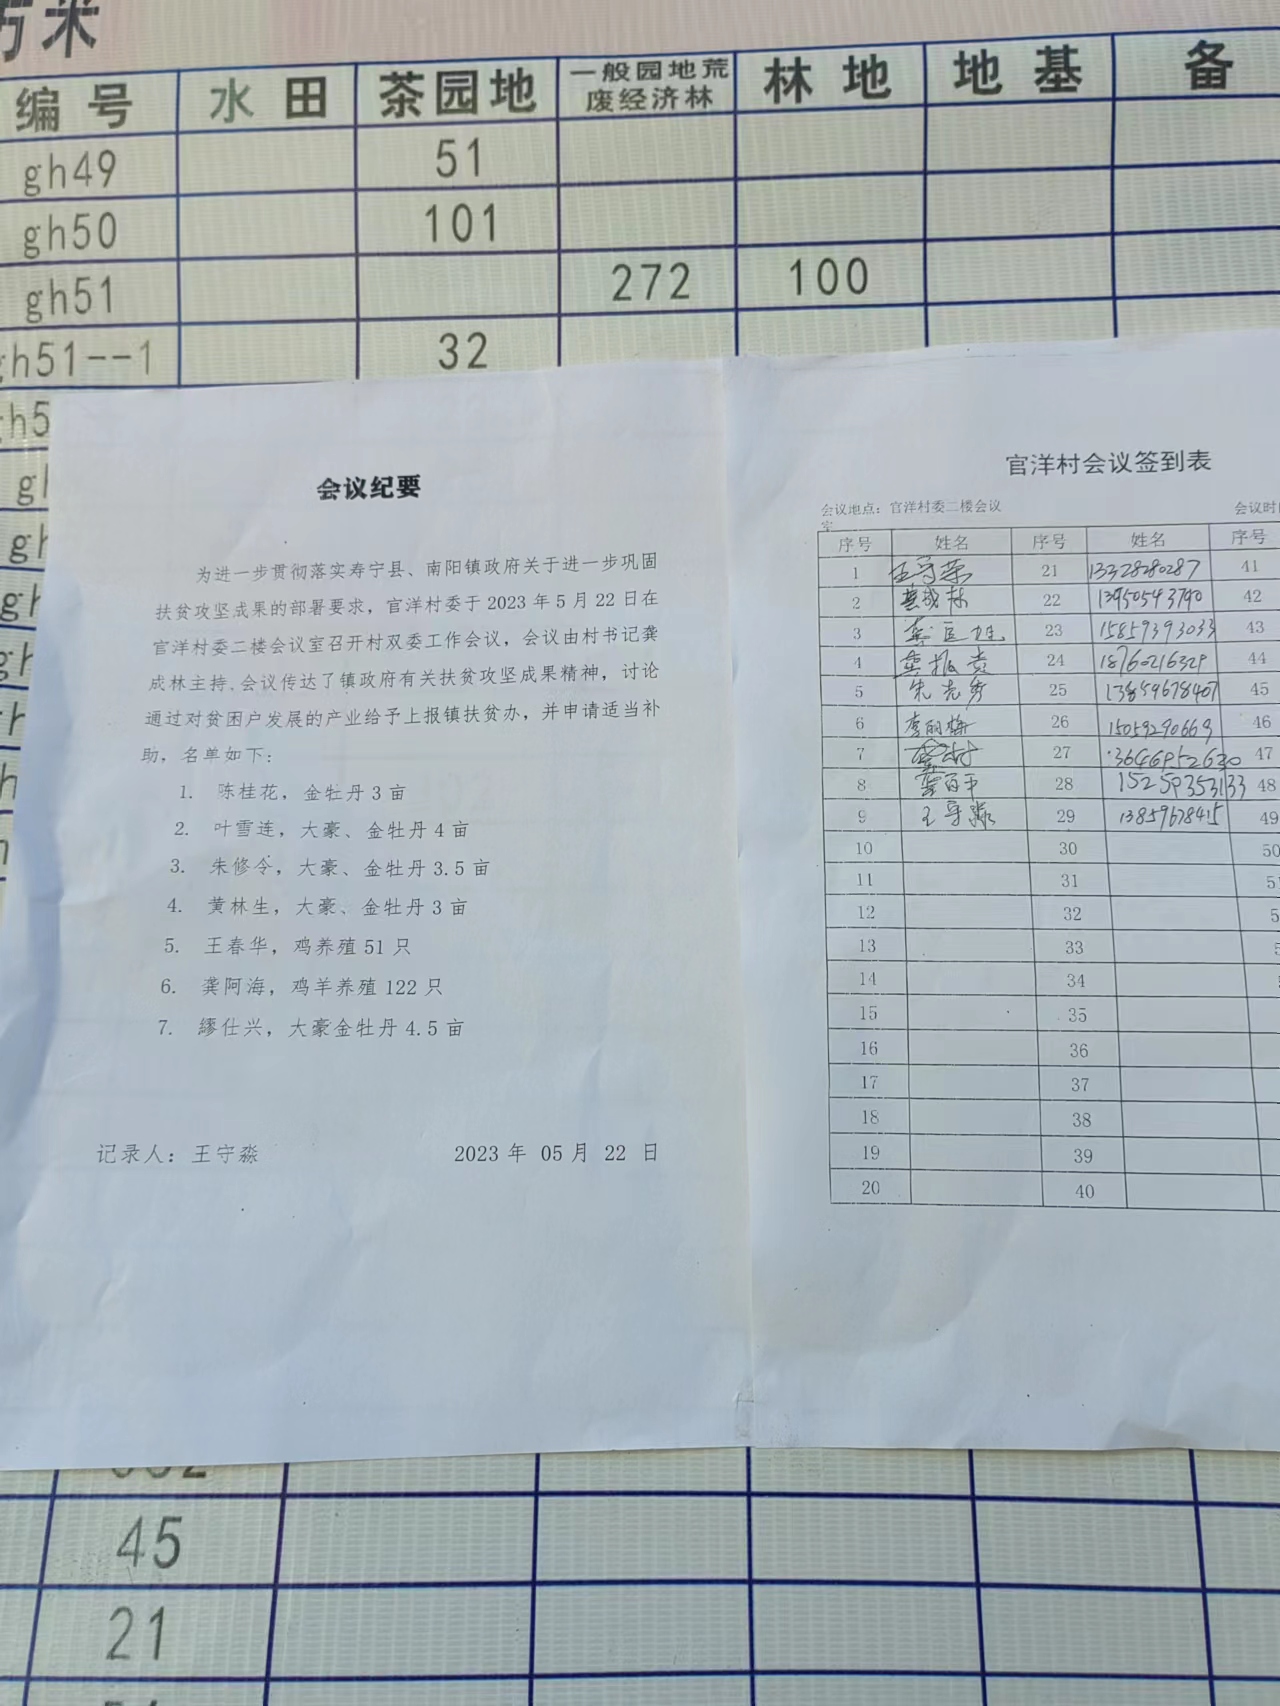 方米
编号 水田 茶园地 一般园地荒废经济林 林地 地基 备
gh49 51
gh50 101
gh51 272 100
gh51--1 32
会议纪要
为进一步贯彻落实寿宁县、南阳镇政府关于进一步巩固
扶贫攻坚成果的部署要求，官洋村委于 2023 年 5 月 22 日在
官洋村委二楼会议室召开村双委工作会议，会议由村书记龚
成林主持、会议传达了镇政府有关扶贫攻坚成果精神，讨论
通过对贫困户发展的产业给予上报镇扶贫办，并申请适当补
助，名单如下：
1. 陈桂花，金牡丹 3 亩
2. 叶雪连，大豪、金牡丹 4 亩
3. 朱修令，大豪、金牡丹 3.5 亩
4. 黄林生，大豪、金牡丹 3 亩
5. 王春华，鸡养殖 51 只
6. 龚阿海，鸡羊养殖 122 只
7. 缪仕兴，大豪金牡丹 4.5 亩
记录人：王守淼 2023 年 05 月 22 日
官洋村会议签到表
会议地点：官洋村委二楼会议室 会议时
序号 姓名 序号 姓名 序号
1 王守荣 21 13328280287 41
2 龚成林 22 13950543790 42
3 23 15859393033 43
4 龚振贵 24 18760216329 44
5 25 13859678407 45
6 李丽梅 26 15059290669 46
7 27 13646952630 47
8 28 15259353133 48
9 王守淼 29 13859678415 49
10 30 50
11 31
12 32
13 33
14 34
15 35
16 36
17 37
18 38
19 39
20 40
45
21